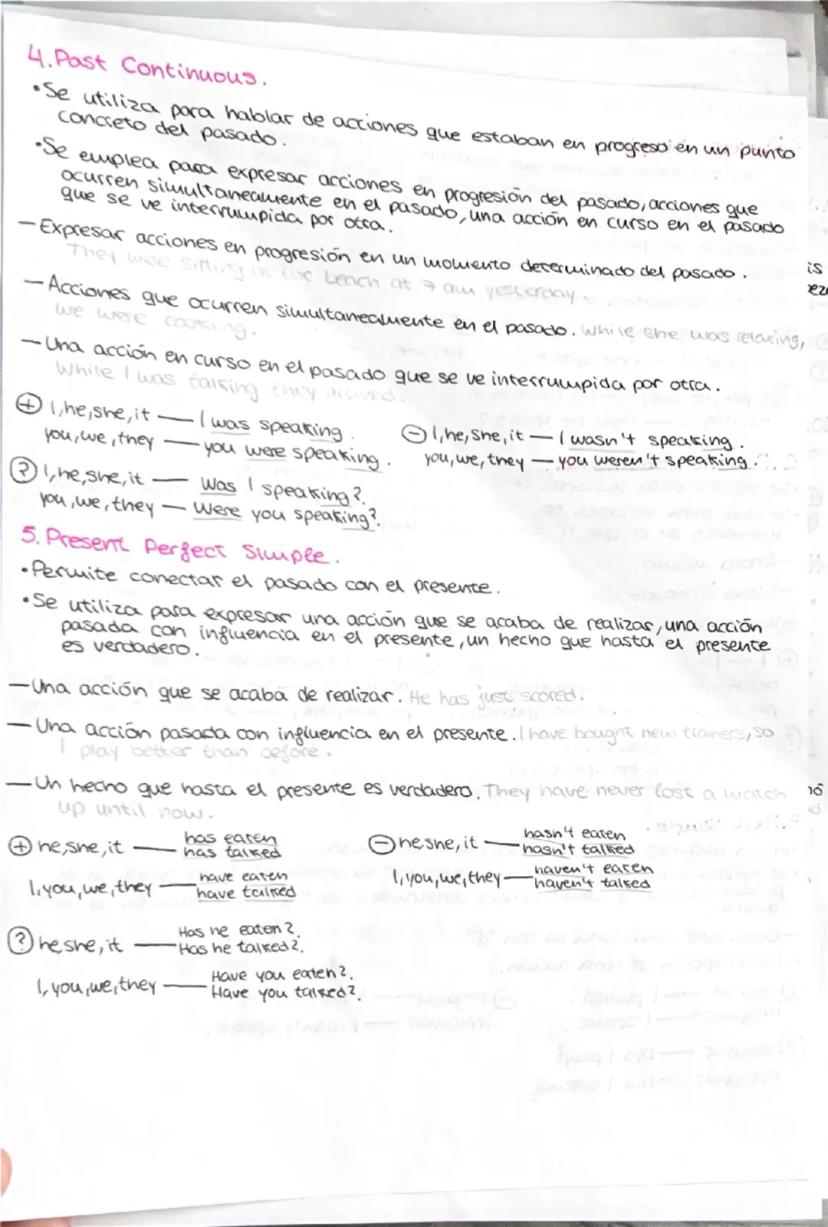 4. Past Continuous.
•Se utiliza para hablar de acciones que estaban en progreso en un punto
concreto del pasado.
•Se emplea para expresar acciones en progresión del pasado, acciones que
ocurren simultaneamente en el pasado, una acción en curso en el pasado
que se ve interrumpida por otra.
— Expresar acciones en progresión en un momento determinado del pasado.
They were sitting at the beach at 7 am yesterday.
— Acciones que ocurren simultaneamente en el pasado. While she was relaxing,
we were cooking.
— Una acción en curso en el pasado que se ve interrumpida por otra.
While I was talking they arrived.
+ I, he, she, it — I was speaking.
you, we, they — you were speaking.
- I, he, she, it — I wasn't speaking.
you, we, they — you weren't speaking.
? I, he, she, it — Was I speaking?.
you, we, they — Were you speaking?.
5. Present Perfect Simple.
•Permite conectar el pasado con el presente.
•Se utiliza para expresar una acción que se acaba de realizar, una acción
pasada con influencia en el presente, un hecho que hasta el presente
es verdadero.
— Una acción que se acaba de realizar. He has just scored.
— Una acción pasada con influencia en el presente. I have bought new trainers, so
I play better than before.
— Un hecho que hasta el presente es verdadero. They have never lost a match
up until now.
+ he, she, it — has eaten
has talked
I, you, we, they — have eaten
have talked
- he, she, it — hasn't eaten
hasn't talked
I, you, we, they — haven't eaten
haven't talked
? he, she, it — Has he eaten?.
Has he talked?.
I, you, we, they — Have you eaten?.
Have you talked?.